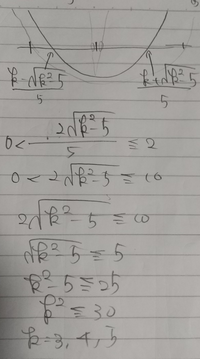 k-√k²-5 / 5
k+√k²-5 / 5
0< 2√k²-5 / 5 ≦ 2
0 < 2√k²-5 ≦ 10
2√k²-5 ≦ 10
√k²-5 ≦ 5
k²-5 ≦ 25
k² ≦ 30
k=3, 4, 5